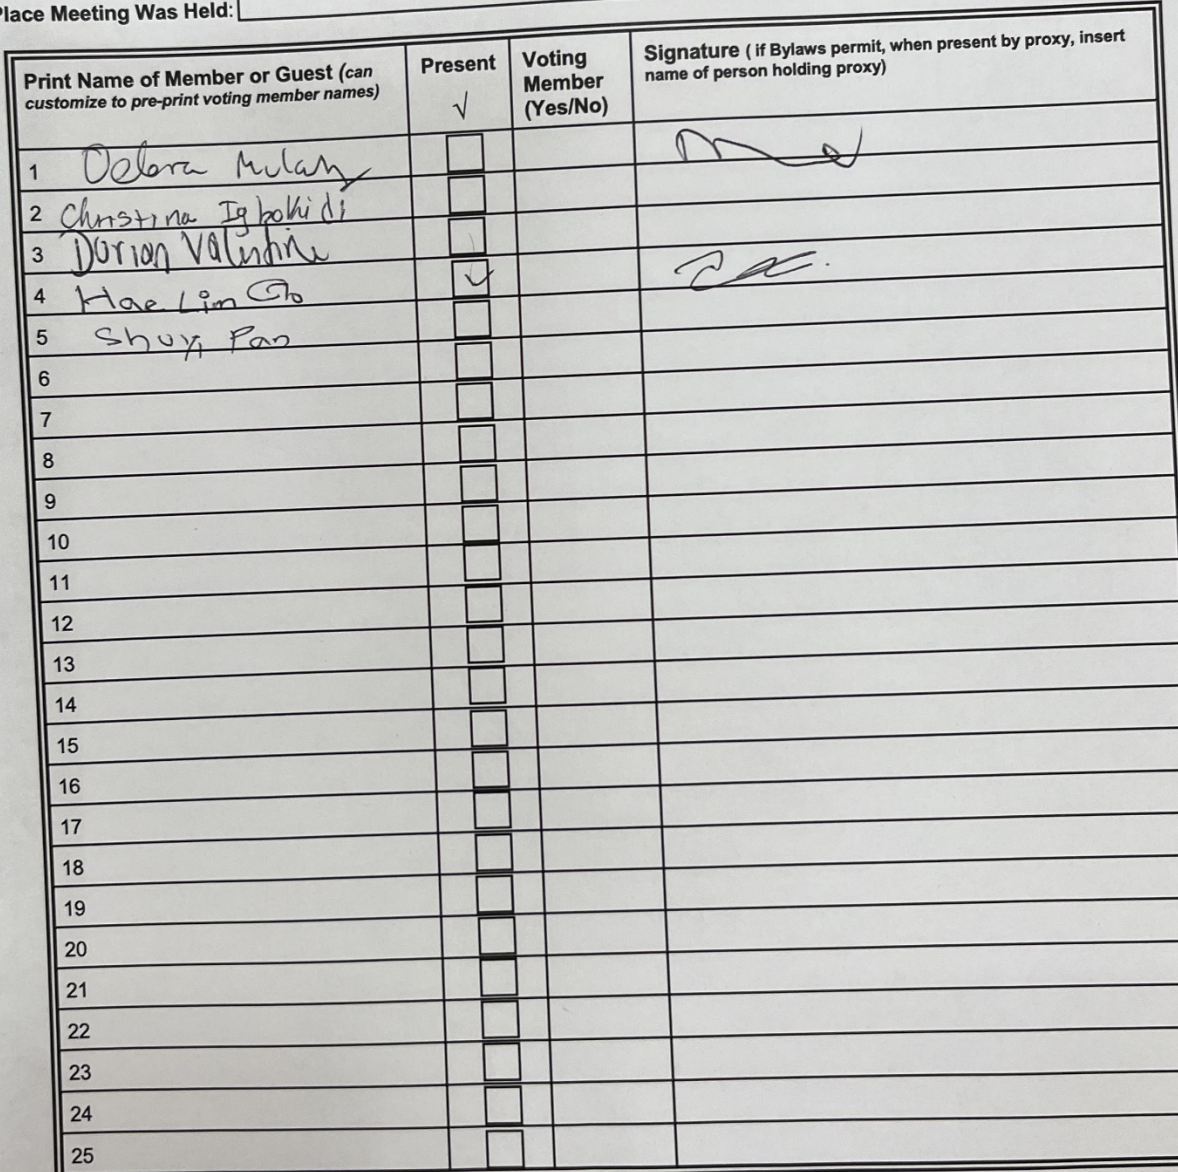 Place Meeting Was Held:
Print Name of Member or Guest (can customize to pre-print voting member names) Present √ Voting Member (Yes/No) Signature ( if Bylaws permit, when present by proxy, insert name of person holding proxy)
1
2 Christina Igbokidi
3 Dorian Valentine
4 Hae Lim Go
5 Shuyi Pan
6
7
8
9
10
11
12
13
14
15
16
17
18
19
20
21
22
23
24
25